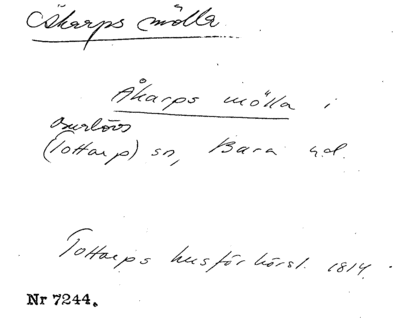 Åkarps mölla
Åkarps mölla i
Burlövs
(Tottarp) sn, Bara hd.
Tottarps husförhörsl. 1814.
Nr 7244.